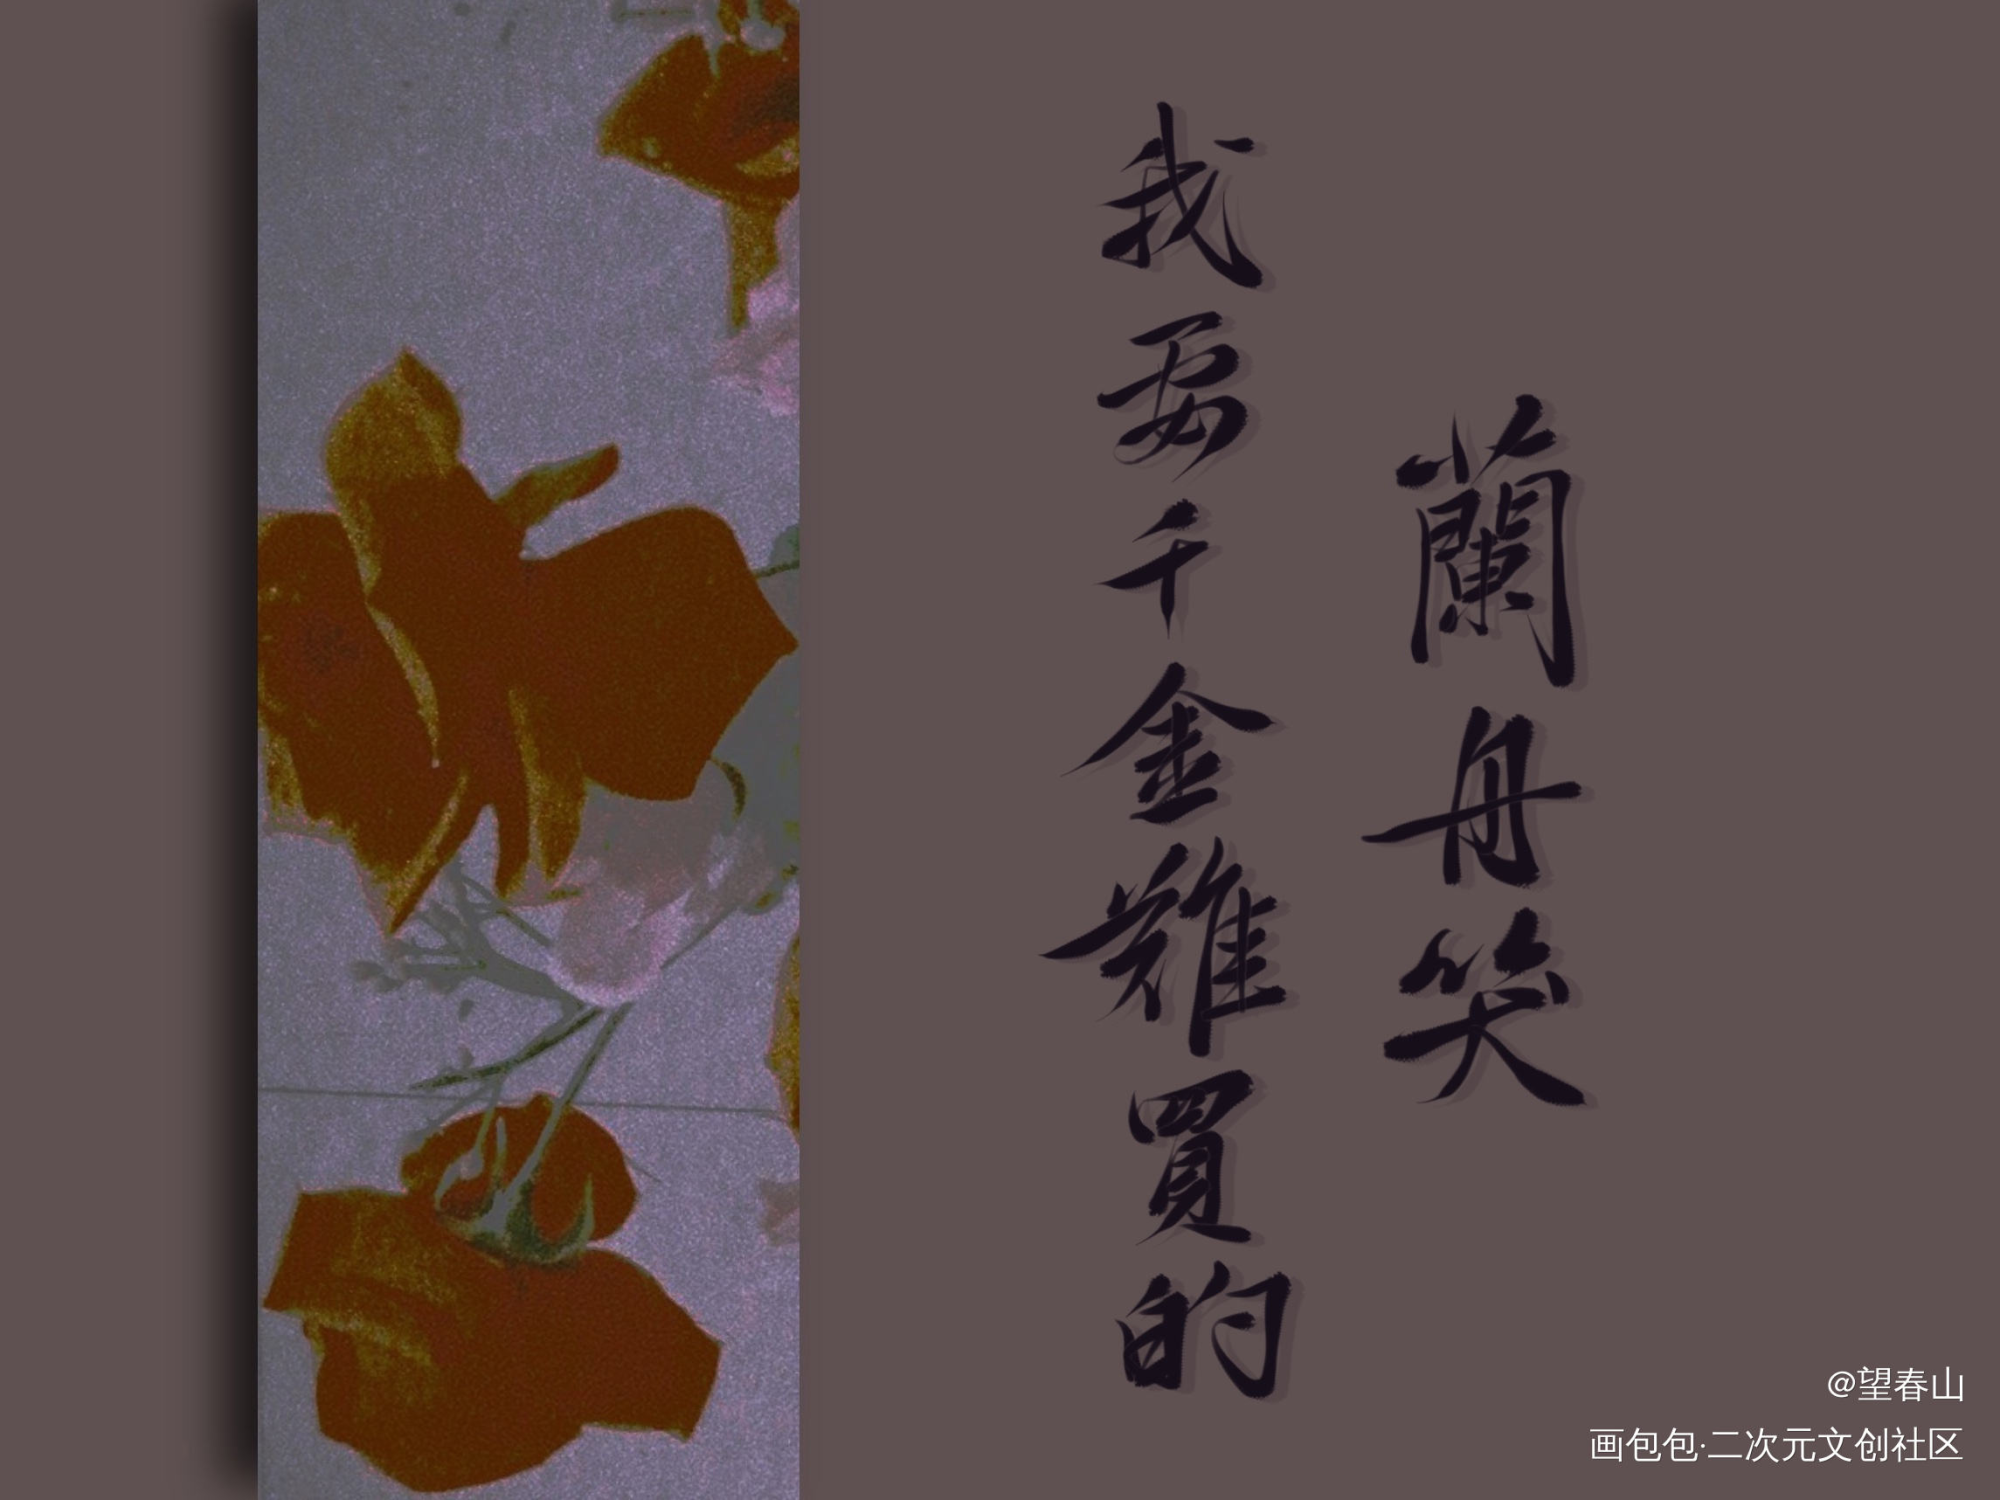 我要千金難買的
蘭舟笑
@望春山
画包包·二次元文创社区